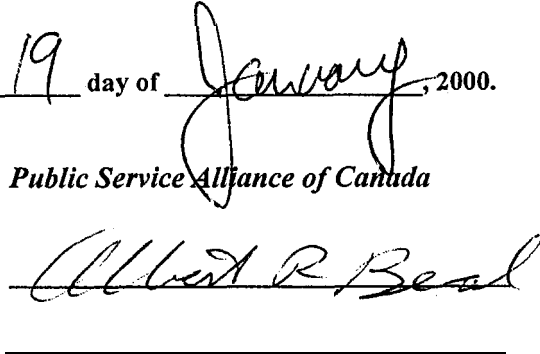 19 day of January, 2000.
Public Service Alliance of Canada
Albert R Beal